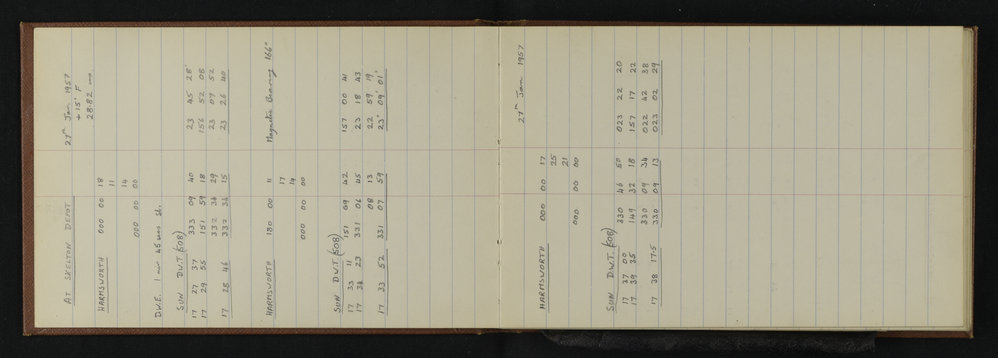 AT SKELTON DEPOT 27th Jan 1957
+ 15° F
28·82 ins.
HARMSWORTH 000 00 18
11
14
000 00 00
D.W.E. 1 min 45 secs
SUN D.W.T. (508)
17 27 37 333 09 40 23 45 28'
17 29 55 151 59 18 156 52 08
332 34 29 23 07 52
17 28 46 332 34 15 23 26 40
HARMSWORTH 180 00 11 Magnetic Bearing 166°
17
14
000 00 00
SUN D.W.T. (508)
17 33 11 151 09 42 157 00 41
17 34 23 331 06 45 23 18 43
08 13 22 59 19
17 33 52 331 07 59 23° 09' 01"
27th Jan 1957
HARMSWORTH 000 00 17
25
21
000 00 00
SUN D.W.T. (508)
17 37 00 330 46 50 023 22 20
17 39 35 149 32 18 157 17 22
330 09 34 022 42 38
17 38 17·5 330 09 13 023 02 29